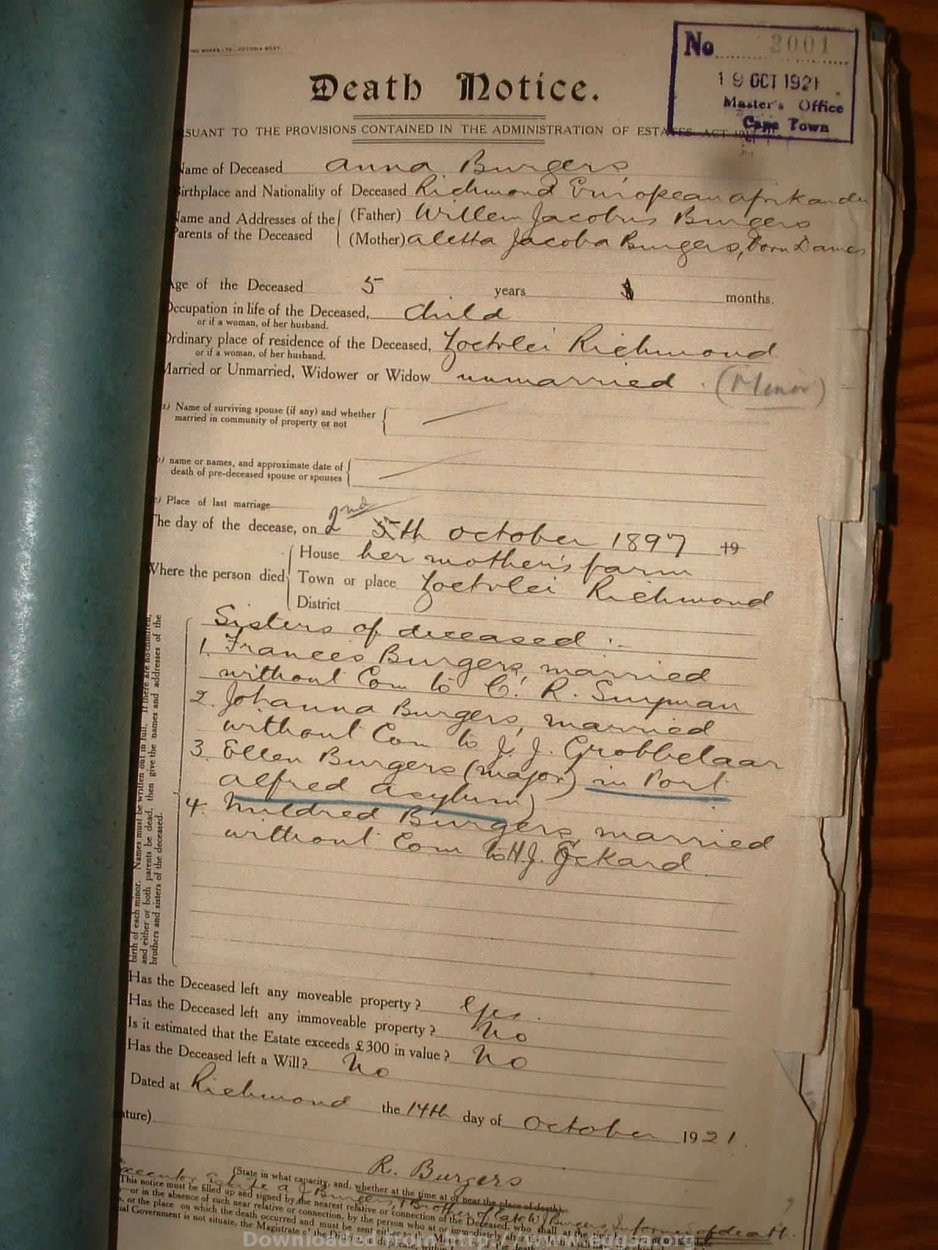 No 2001
19 OCT 1921
Master's Office
Cape Town
Death Notice.
SUANT TO THE PROVISIONS CONTAINED IN THE ADMINISTRATION OF ESTATES ACT
Name of Deceased Anna Burgers
Birthplace and Nationality of Deceased Richmond European afrikander
Name and Addresses of the Parents of the Deceased (Father) Willem Jacobus Burgers
(Mother) aletta Jacoba Burgers, born Davies
Age of the Deceased 5 years months.
Occupation in life of the Deceased, Child
or if a woman, of her husband.
Ordinary place of residence of the Deceased, Zoetvlei Richmond
or if a woman, of her husband.
Married or Unmarried, Widower or Widow unmarried. (Minor)
Name of surviving spouse (if any) and whether
married in community of property or not
name or names, and approximate date of
death of pre-deceased spouse or spouses
Place of last marriage
The day of the decease, on 2nd 5th October 1897 19
Where the person died House her mother's farm
Town or place Zoetvlei Richmond
District
birth of each minor. Names must be written out in full. If there are no children,
and either or both parents be dead, then give the names and addresses of the
brothers and sisters of the deceased.
Sisters of deceased:
1. Frances Burgers, married
without Com to C. R. Snyman
2. Johanna Burgers, married
without Com to J. J. Grobbelaar
3. Ellen Burgers (major) in Port
alfred Asylum)
4. Mildred Burgers, married
without Com to H.J. Eckard.
Has the Deceased left any moveable property? Yes.
Has the Deceased left any immoveable property? No
Is it estimated that the Estate exceeds £300 in value? No
Has the Deceased left a Will? No
Dated at Richmond the 14th day of October 1921.
ature)
R. Burgers
(State in what capacity, and, whether at the time at or near the place of death).
This notice must be filled up and signed by the nearest relative or connection of the Deceased, who
or in the absence of such near relative or connection, by the person who at or immediately
or the place on which the death occurred and must be sent
ial Government is not situate, the Magistrate of the District
Downloaded from http://www.eggsa.org